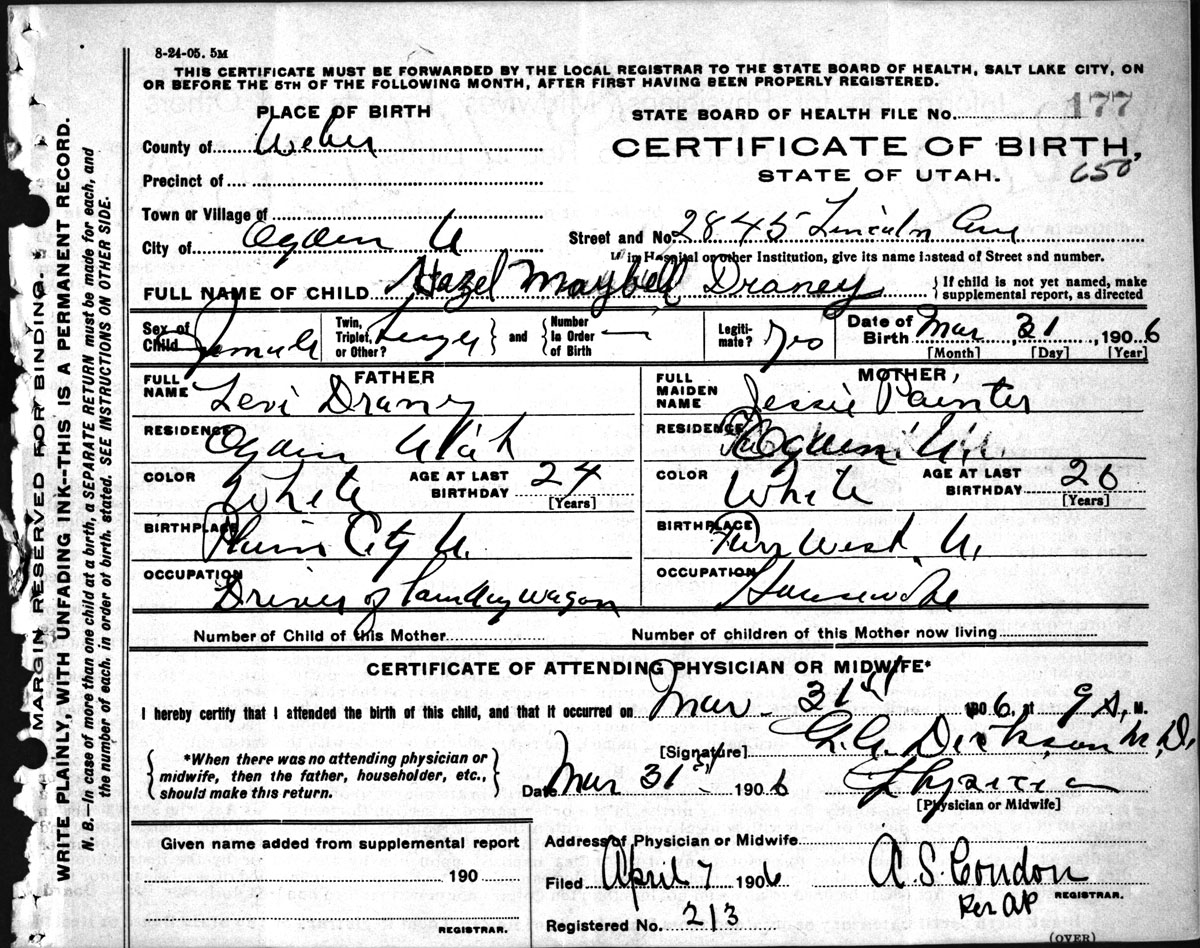 8-24-05. 5M
THIS CERTIFICATE MUST BE FORWARDED BY THE LOCAL REGISTRAR TO THE STATE BOARD OF HEALTH, SALT LAKE CITY, ON
OR BEFORE THE 5TH OF THE FOLLOWING MONTH, AFTER FIRST HAVING BEEN PROPERLY REGISTERED.
PLACE OF BIRTH
STATE BOARD OF HEALTH FILE No. 177
County of Weber
CERTIFICATE OF BIRTH,
Precinct of
STATE OF UTAH. 650
Town or Village of
City of Ogden U Street and No. 2845 Lincoln Ave
If in Hospital or other Institution, give its name instead of Street and number.
FULL NAME OF CHILD Hazel Maybell Draney { If child is not yet named, make supplemental report, as directed
Sex of Child Female Twin, Triplet, or Other? and { Number in Order of Birth — Legiti-mate? Yes Date of Birth Mar, 31, 1906
[Month] [Day] [Year]
FATHER
FULL NAME Levi Draney
RESIDENCE Ogden Utah
COLOR White AGE AT LAST BIRTHDAY 24
[Years]
BIRTHPLACE Plain City U.
OCCUPATION Driver of Laundry wagon
MOTHER,
FULL MAIDEN NAME Jessie Painter
RESIDENCE Ogden U
COLOR White AGE AT LAST BIRTHDAY 26
[Years]
BIRTHPLACE Farr West, U.
OCCUPATION Housewife
Number of Child of this Mother Number of children of this Mother now living
CERTIFICATE OF ATTENDING PHYSICIAN OR MIDWIFE*
I hereby certify that I attended the birth of this child, and that it occurred on Mar. 31st 1906, at 9 A, M.
[Signature] Dickson M.D.
{ *When there was no attending physician or midwife, then the father, householder, etc., should make this return. }
Date Mar 31st 1906 Physician
[Physician or Midwife]
Given name added from supplemental report
190
REGISTRAR.
Address of Physician or Midwife
Filed April 7 1906 A. S. Condon
REGISTRAR.
Per AP
Registered No. 213
(OVER)
MARGIN RESERVED FOR BINDING
WRITE PLAINLY, WITH UNFADING INK--THIS IS A PERMANENT RECORD.
N. B.—In case of more than one child at a birth, a SEPARATE RETURN must be made for each, and
the number of each, in order of birth, stated. SEE INSTRUCTIONS ON OTHER SIDE.